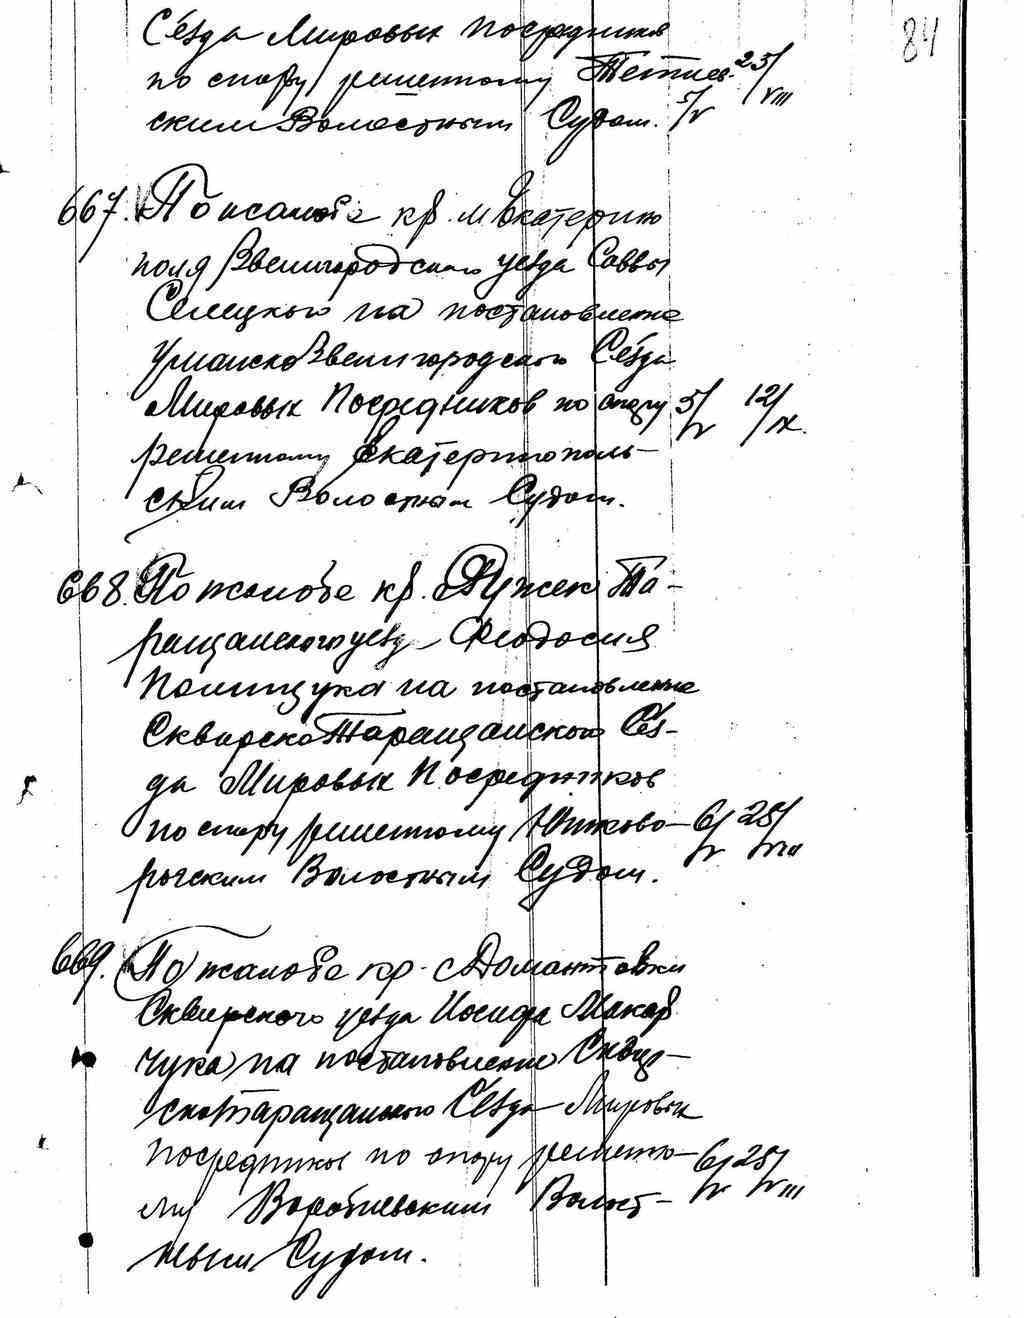 84
Съезда Мировых посредников
по спору решенному Тетиев- 25/VIII
ским Волостным Судом. 5/V
667. По жалобе кр. м. Екатерино
поля Звенигородского уезда Саввы
Селецкого на постановление
УманскоЗвенигородского Съезда
Мировых Посредников по спору 5/V 12/IX.
решенному Екатеринополь-
ским Волостным Судом.
668. По жалобе кр. с. Ружек Та-
ращанского уезда Феодосия
Полищука на постановление
СквирскоТаращанского Съез-
да Мировых Посредников
по спору решенному Юшково- 6/V 25/VIII
рогским Волостным Судом.
669. По жалобе кр. с. Домантовки
Сквирского уезда Иосифа Макар
чука на постановление Сквир-
скоТаращанского Съезда Мировых
посредников по спору решенно- 6/V 25/VIII
му Волост-
ным Судом.